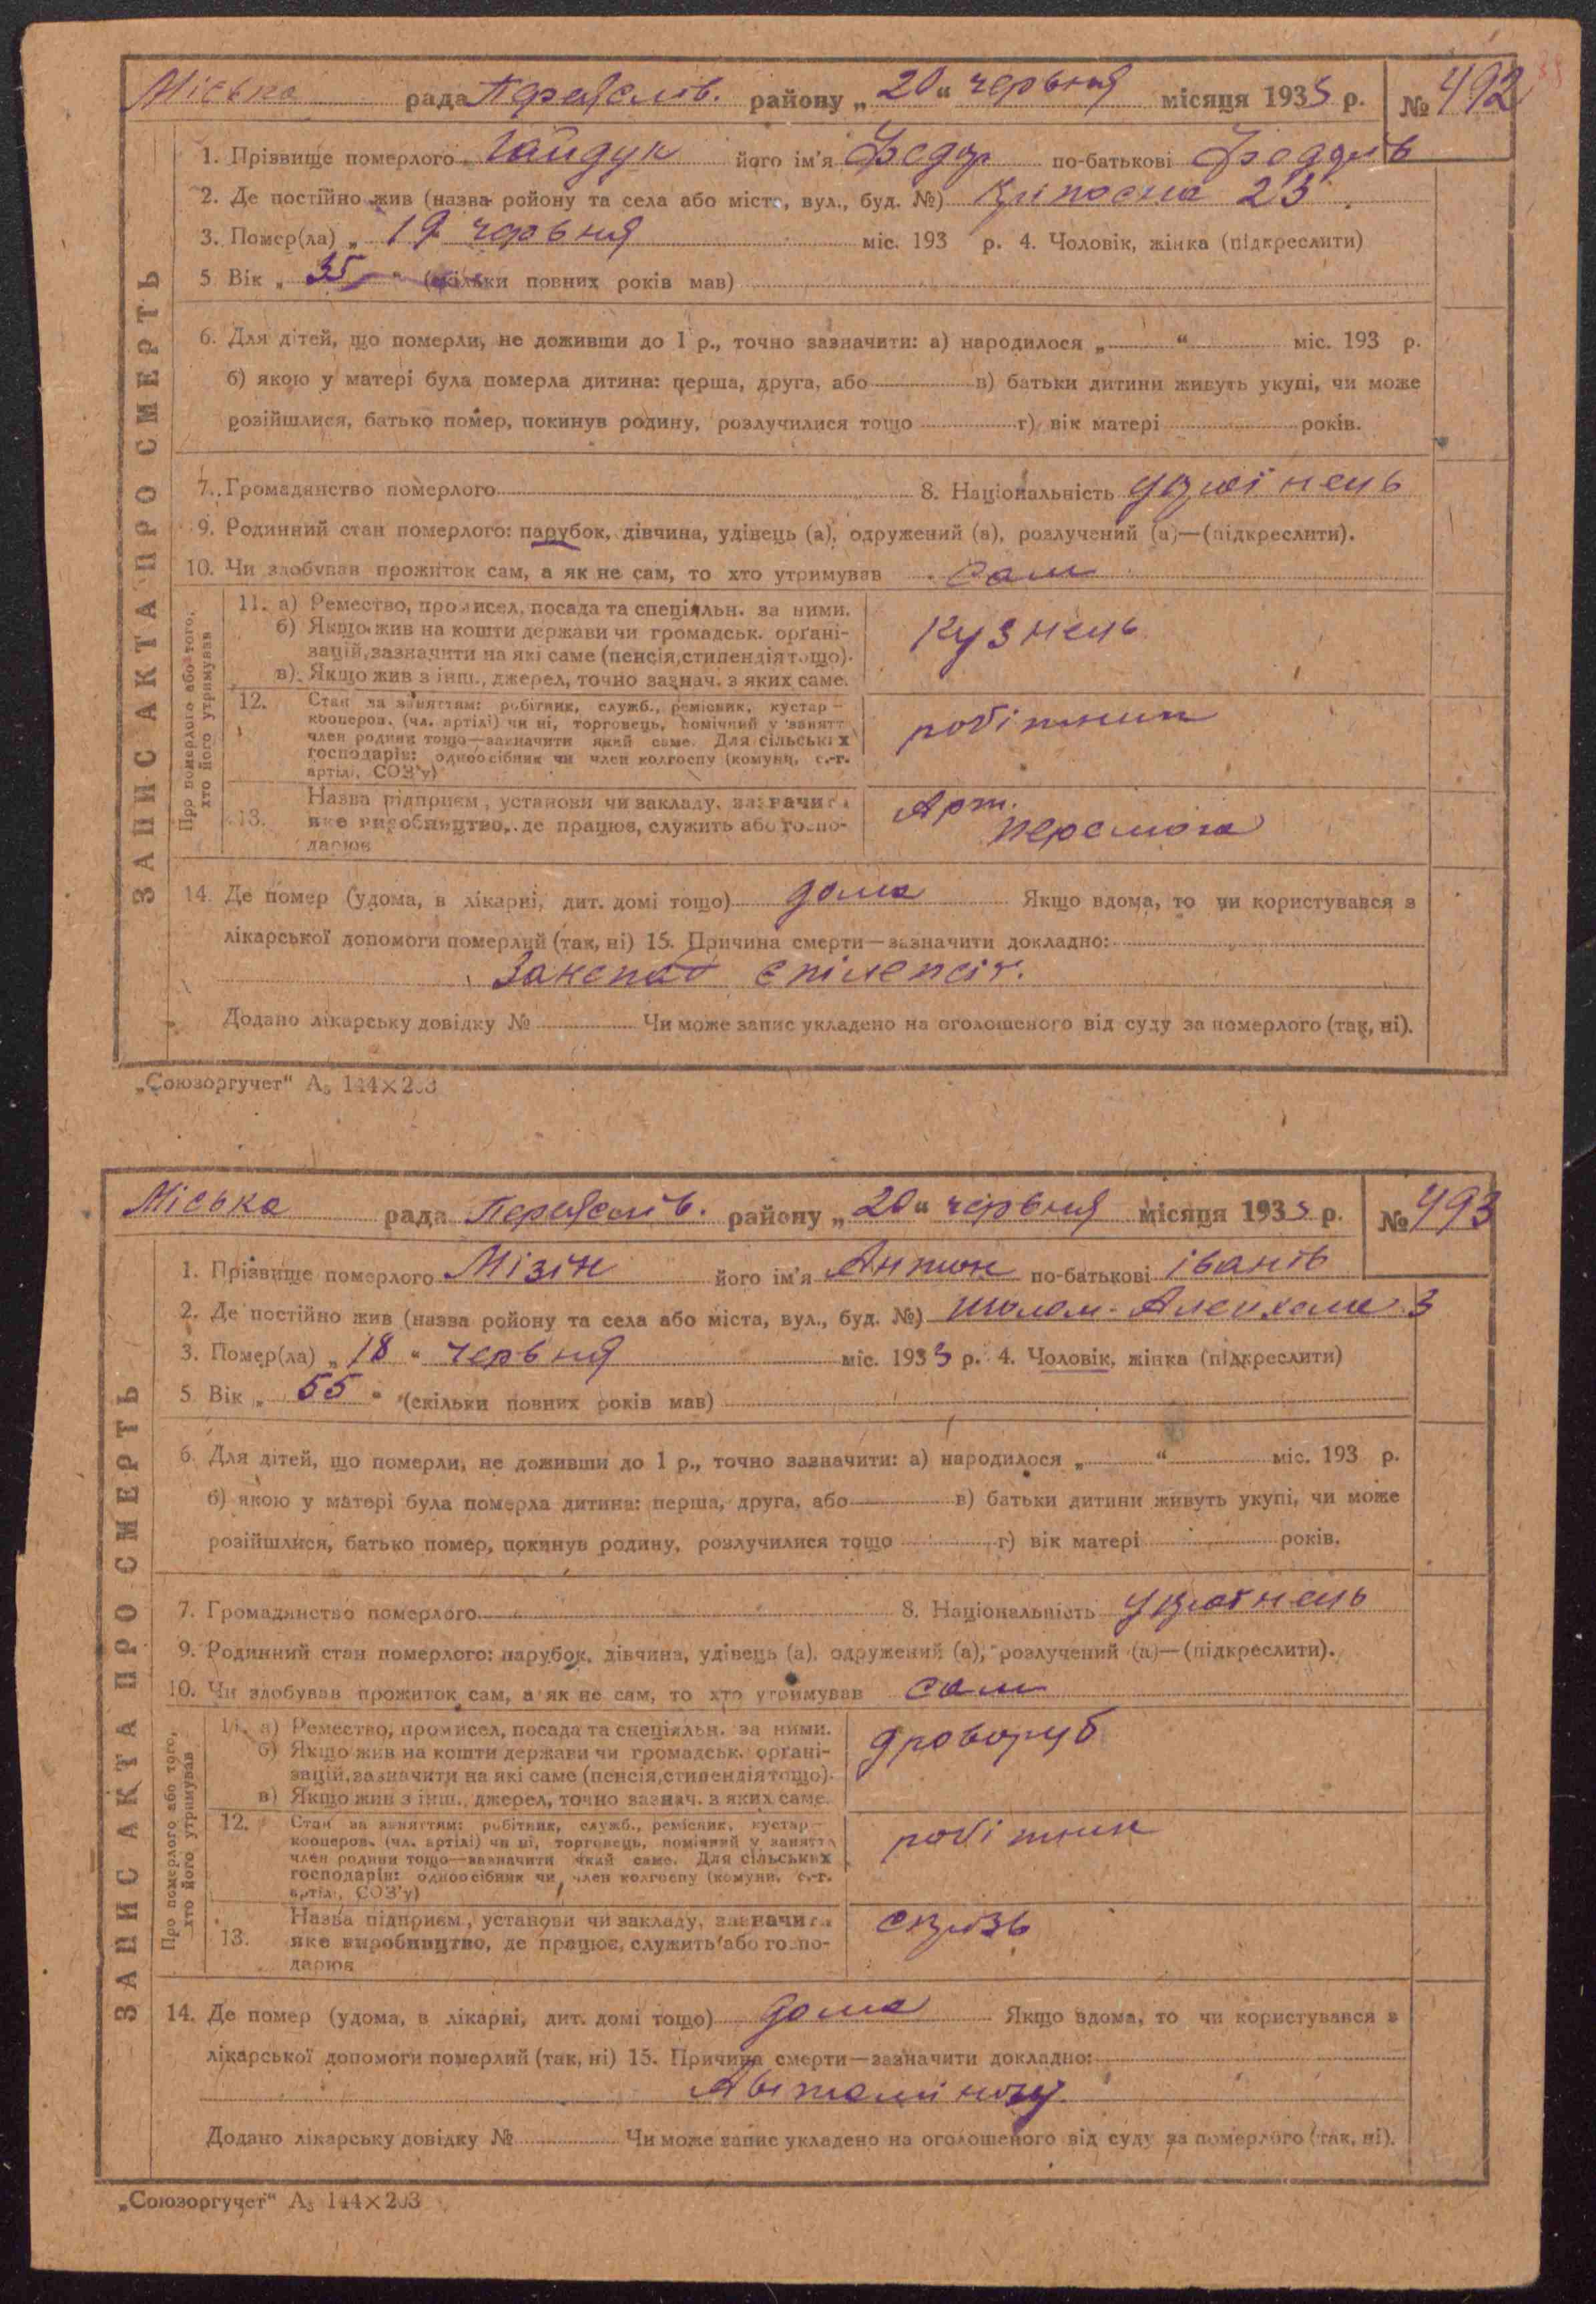 Міська рада Переяслів. району „ 20 “ червня місяця 1933 р. № 492
ЗАПИС АКТА ПРО СМЕРТЬ
1. Прізвище померлого Гайдук його ім'я Федор по-батькові
2. Де постійно жив (назва ройону та села або міста, вул., буд. №) Кріпосна 23
3. Помер(ла) „ 19 червня міс. 193 р. 4. Чоловік, жінка (підкреслити)
5 Вік „ 35 “ (скільки повних років мав)
6. Для дітей, що померли, не доживши до 1 р., точно зазначити: а) народилося „ “ міс. 193 р.
б) якою у матері була померла дитина: перша, друга, або в) батьки дитини живуть укупі, чи може
розійшлися, батько помер, покинув родину, розлучилися тощо г) вік матері років.
7. Громадянство померлого 8. Національність українець
9. Родинний стан померлого: парубок, дівчина, удівець (а), одружений (а), розлучений (а)—(підкреслити).
10. Чи здобував прожиток сам, а як не сам, то хто утримував сам
Про померлого або того, хто його утримував
11. а) Ремество, промисел, посада та спеціяльн. за ними.
б) Якщо жив на кошти держави чи громадськ. орґані-
зацій, зазначити на які саме (пенсія, стипендія тощо).
в) Якщо жив з інш., джерел, точно зазнач. з яких саме.
кузнець
12. Стан за заняттям: робітник, служб., ремісник, кустар—
кооперов. (чл. артілі) чи ні, торговець, помічний у занятт
член родини тощо—зазначити який саме. Для сільських
господарів: одноосібник чи член колгоспу (комуни, с.-г.
артілі, СОЗ'у)
робітник
13. Назва підприєм, установи чи закладу, зазначити
яке виробництво, де працює, служить або госпо-
дарює
Арт.
перемога
14. Де помер (удома, в лікарні, дит. домі тощо) дома Якщо вдома, то чи користувався з
лікарської допомоги померлий (так, ні) 15. Причина смерти—зазначити докладно:
епілепсія.
Додано лікарську довідку № Чи може запис укладено на оголошеного від суду за померлого (так, ні).
„Союзоргучет“ А₅ 144×203
Міська рада Переяслів. району „ 20 “ червня місяця 1933 р. № 493
ЗАПИС АКТА ПРО СМЕРТЬ
1. Прізвище померлого Мізін його ім'я Антон по-батькові іванів
2. Де постійно жив (назва ройону та села або міста, вул., буд. №) Шолом-Алейхема 3
3. Помер(ла) „ 18 “ червня міс. 1933 р. 4. Чоловік, жінка (підкреслити)
5 Вік „ 55 “ (скільки повних років мав)
6. Для дітей, що померли, не доживши до 1 р., точно зазначити: а) народилося „ “ міс. 193 р.
б) якою у матері була померла дитина: перша, друга, або в) батьки дитини живуть укупі, чи може
розійшлися, батько помер, покинув родину, розлучилися тощо г) вік матері років.
7. Громадянство померлого 8. Національність українець
9. Родинний стан померлого: парубок, дівчина, удівець (а), одружений (а), розлучений (а)—(підкреслити).
10. Чи здобував прожиток сам, а як не сам, то хто утримував сам
Про померлого або того, хто його утримував
11. а) Ремество, промисел, посада та спеціяльн. за ними.
б) Якщо жив на кошти держави чи громадськ. орґані-
зацій, зазначити на які саме (пенсія, стипендія тощо).
в) Якщо жив з інш., джерел, точно зазнач. з яких саме.
дроворуб
12. Стан за заняттям: робітник, служб., ремісник, кустар—
кооперов. (чл. артілі) чи ні, торговець, помічний у занятт
член родини тощо—зазначити який саме. Для сільських
господарів: одноосібник чи член колгоспу (комуни, с.-г.
артілі, СОЗ'у)
робітник
13. Назва підприєм, установи чи закладу, зазначити
яке виробництво, де працює, служить або госпо-
дарює
скрізь
14. Де помер (удома, в лікарні, дит. домі тощо) дома Якщо вдома, то чи користувався з
лікарської допомоги померлий (так, ні) 15. Причина смерти—зазначити докладно:
Авитамінозу
Додано лікарську довідку № Чи може запис укладено на оголошеного від суду за померлого (так, ні).
„Союзоргучет“ А₅ 144×203